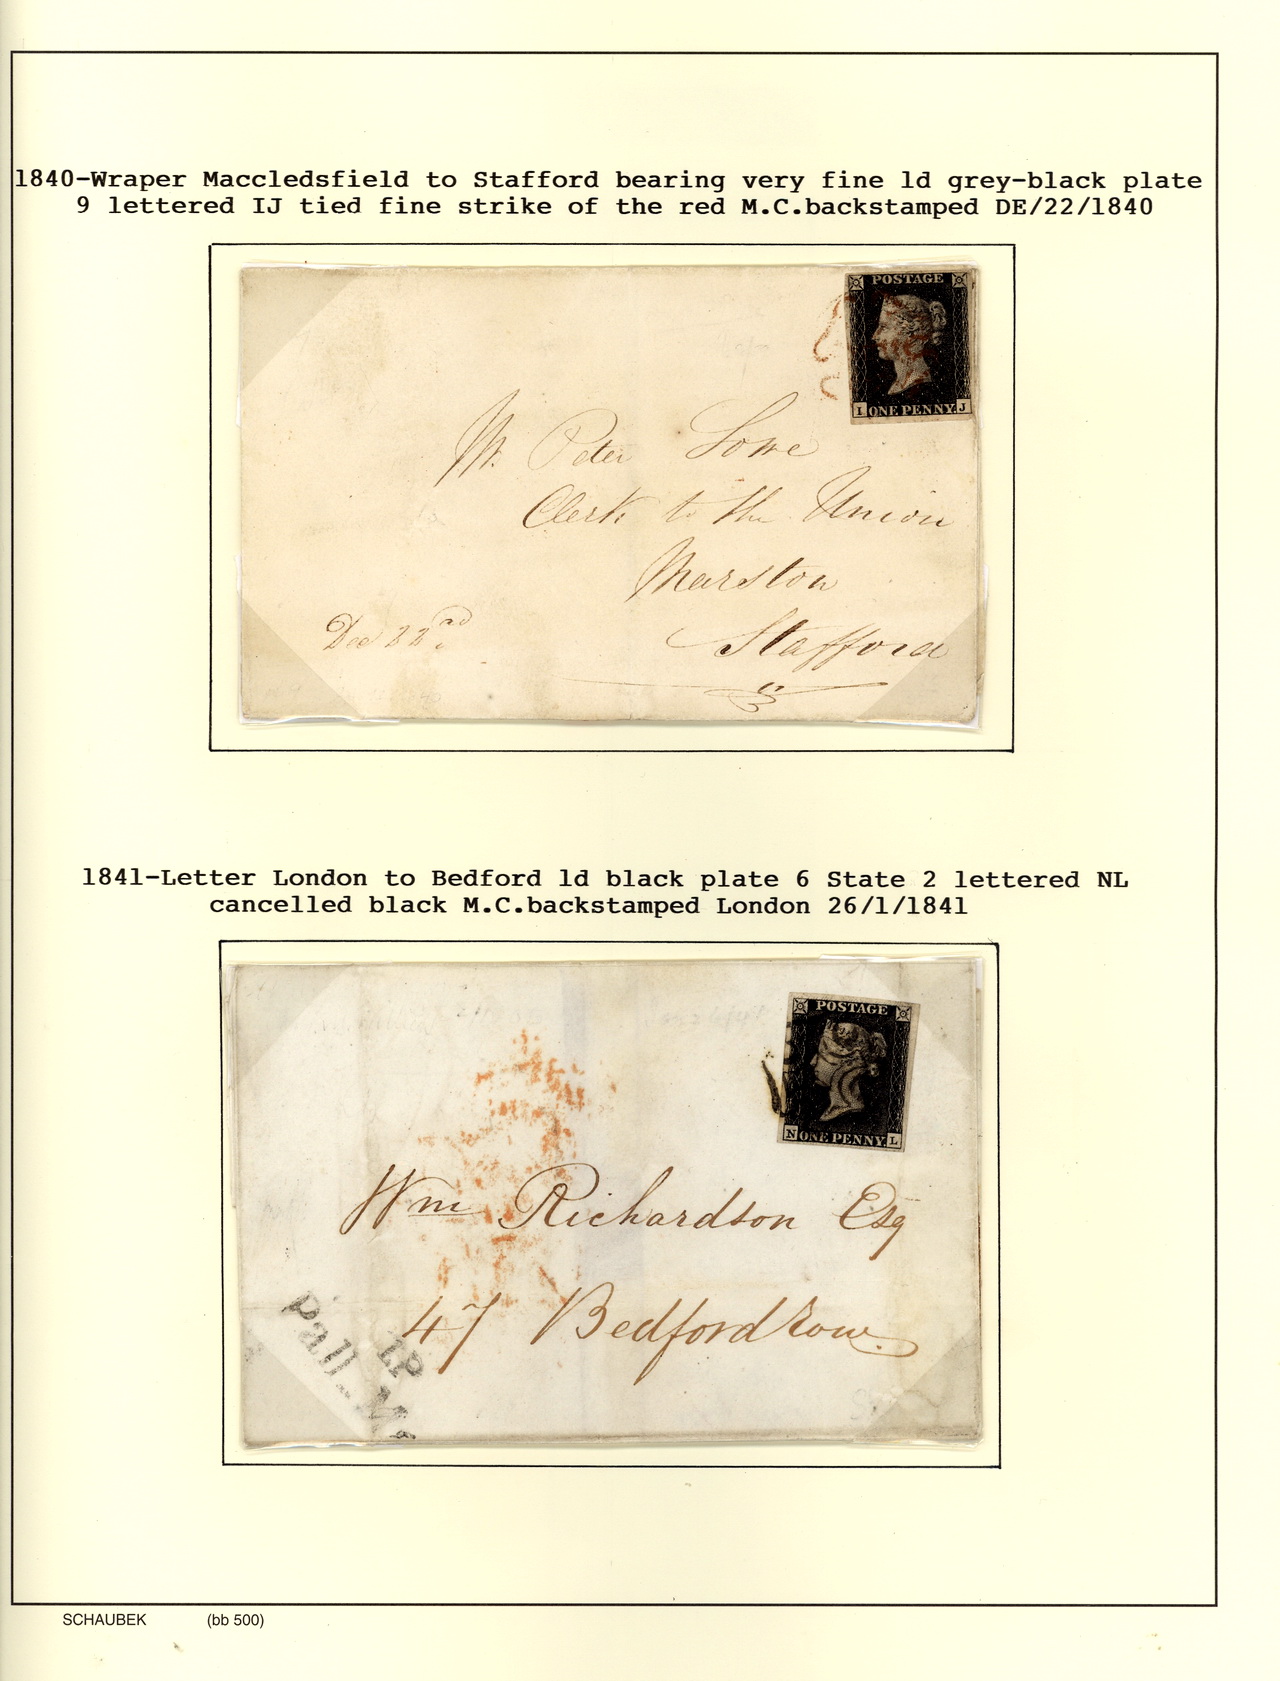 1840-Wraper Maccledsfield to Stafford bearing very fine 1d grey-black plate
9 lettered IJ tied fine strike of the red M.C.backstamped DE/22/1840
POSTAGE
I ONE PENNY J
Mr. Peter Lowe
Clerk to the Union
Marston
Stafford
Dec 22nd.
1841-Letter London to Bedford 1d black plate 6 State 2 lettered NL
cancelled black M.C.backstamped London 26/1/1841
POSTAGE
N ONE PENNY L
Wm Richardson Esq
47 Bedford row.
1P
Pall-M
SCHAUBEK (bb 500)